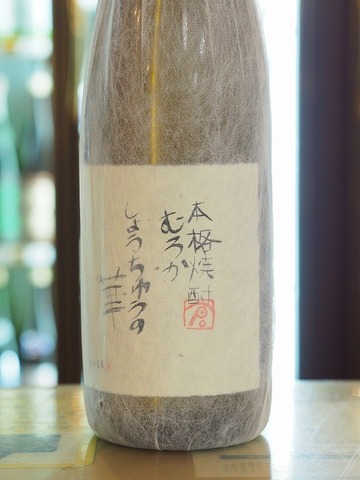 本格焼酎
むろか
しょうちゅうの
華
2016